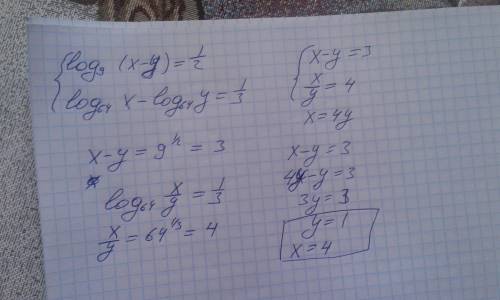 log₉ (x-y) = 1/2
log₆₄ x - log₆₄ y = 1/3
x-y = 9^½ = 3
log₆₄ x/y = 1/3
x/y = 64^⅓ = 4
x-y = 3
x/y = 4
x = 4y
x-y = 3
4y-y = 3
3y = 3
y = 1
x = 4